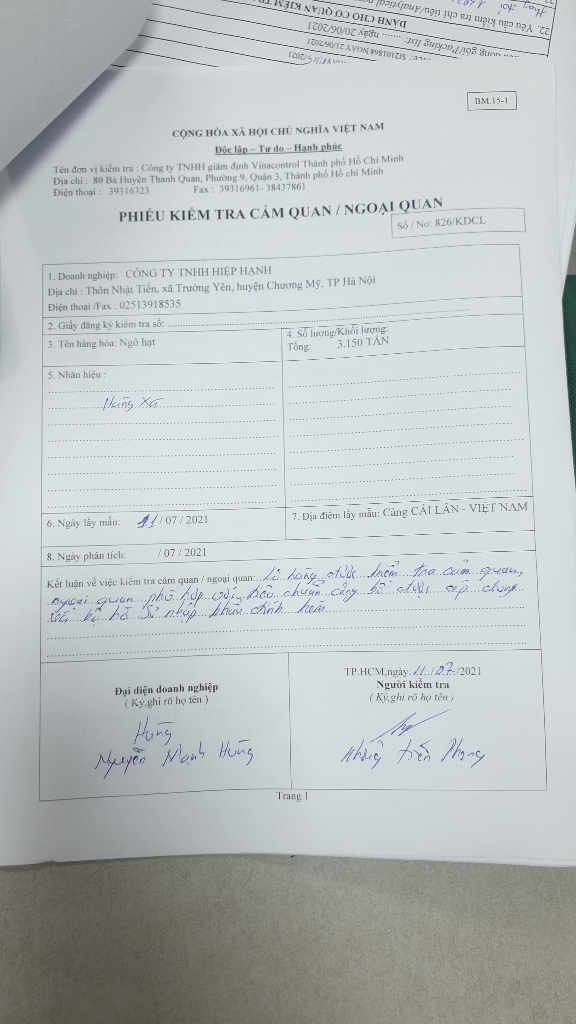 22. Yêu cầu kiểm tra chỉ tiêu/Analytical
DÀNH CHO CƠ QUAN KIỂM TR
đóng gói/Packing list: ....... ngày 20/06/2021
SI2101868 NGÀY 21/06/2021
BM.15-1
CỘNG HÒA XÃ HỘI CHỦ NGHĨA VIỆT NAM
Độc lập – Tự do – Hạnh phúc
Tên đơn vị kiểm tra : Công ty TNHH giám định Vinacontrol Thành phố Hồ Chí Minh
Địa chỉ : 80 Bà Huyện Thanh Quan, Phường 9, Quận 3, Thành phố Hồ chí Minh
Điện thoại : 39316323 Fax : 39316961- 38437861
PHIẾU KIỂM TRA CẢM QUAN / NGOẠI QUAN
Số / No: 826/KDCL
1. Doanh nghiệp: CÔNG TY TNHH HIỆP HẠNH
Địa chỉ : Thôn Nhật Tiến, xã Trường Yên, huyện Chương Mỹ, TP Hà Nội
Điện thoại /Fax : 02513918535
2. Giấy đăng ký kiểm tra số:
3. Tên hàng hóa: Ngô hạt
4. Số lượng/Khối lượng:
Tổng: 3.150 TẤN
5. Nhãn hiệu :
Hàng xá
6. Ngày lấy mẫu: 11 / 07 / 2021
7. Địa điểm lấy mẫu: Cảng CÁI LÂN - VIỆT NAM
8. Ngày phân tích: / 07 / 2021
Kết luận về việc kiểm tra cảm quan / ngoại quan: Lô hàng được kiểm tra cảm quan,
ngoại quan phù hợp với tiêu chuẩn công bố được áp dụng
với bộ hồ sơ nhập khẩu đính kèm
Đại diện doanh nghiệp
( Ký,ghi rõ họ tên )
Hùng
Nguyễn Mạnh Hùng
TP.HCM,ngày 11 / 07 /2021
Người kiểm tra
( Ký,ghi rõ họ tên )
Tiến Phong
Trang 1